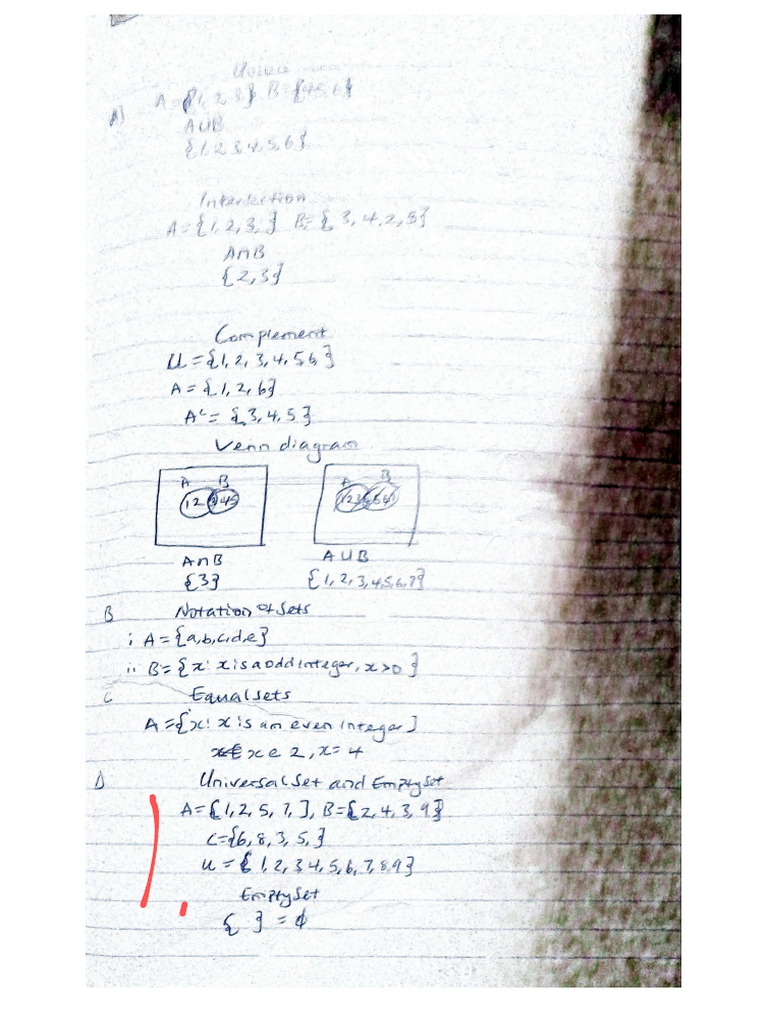 Union
A) A = {1, 2, 3} B = {4,5,6}
AUB
{1,2,3,4,5,6}
Intersection
A = {1, 2, 3, } B = { 3, 4, 2, 5}
A∩B
{2,3}
Complement
U = {1, 2, 3, 4, 5, 6, }
A = {1, 2, 6}
Aᶜ = {3, 4, 5}
Venn diagram
A B A B
1 2 3 4 5
A∩B AUB
{3} {1, 2, 3, 4,5,6,7}
B Notation of Sets
i A = {a,b,c,d,e}
ii B = {x: x is a odd integer, x>0 }
C Equal sets
A = {x: x is an even integer]
x e 2, x = 4
D Universal Set and Empty Set
A = {1, 2, 5, 7, ], B = {2, 4, 3, 9}
C = {6, 8, 3, 5, }
U = { 1, 2, 3, 4, 5, 6, 7, 8, 9}
Empty Set
{ } = ϕ